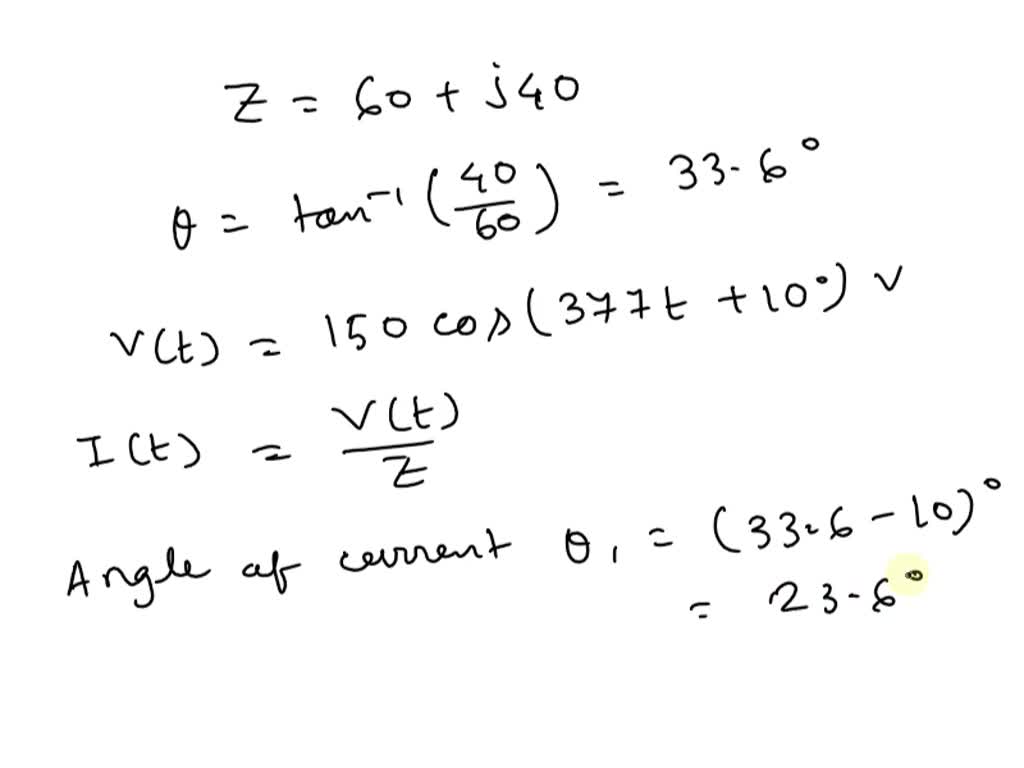 Z = 60 + j40
θ = tan⁻¹ (40/60) = 33.6°
V(t) = 150 cos(377t + 10°) V
I(t) = V(t)/Z
Angle of current θ₁ = (33.6 - 10)°
= 23.6°